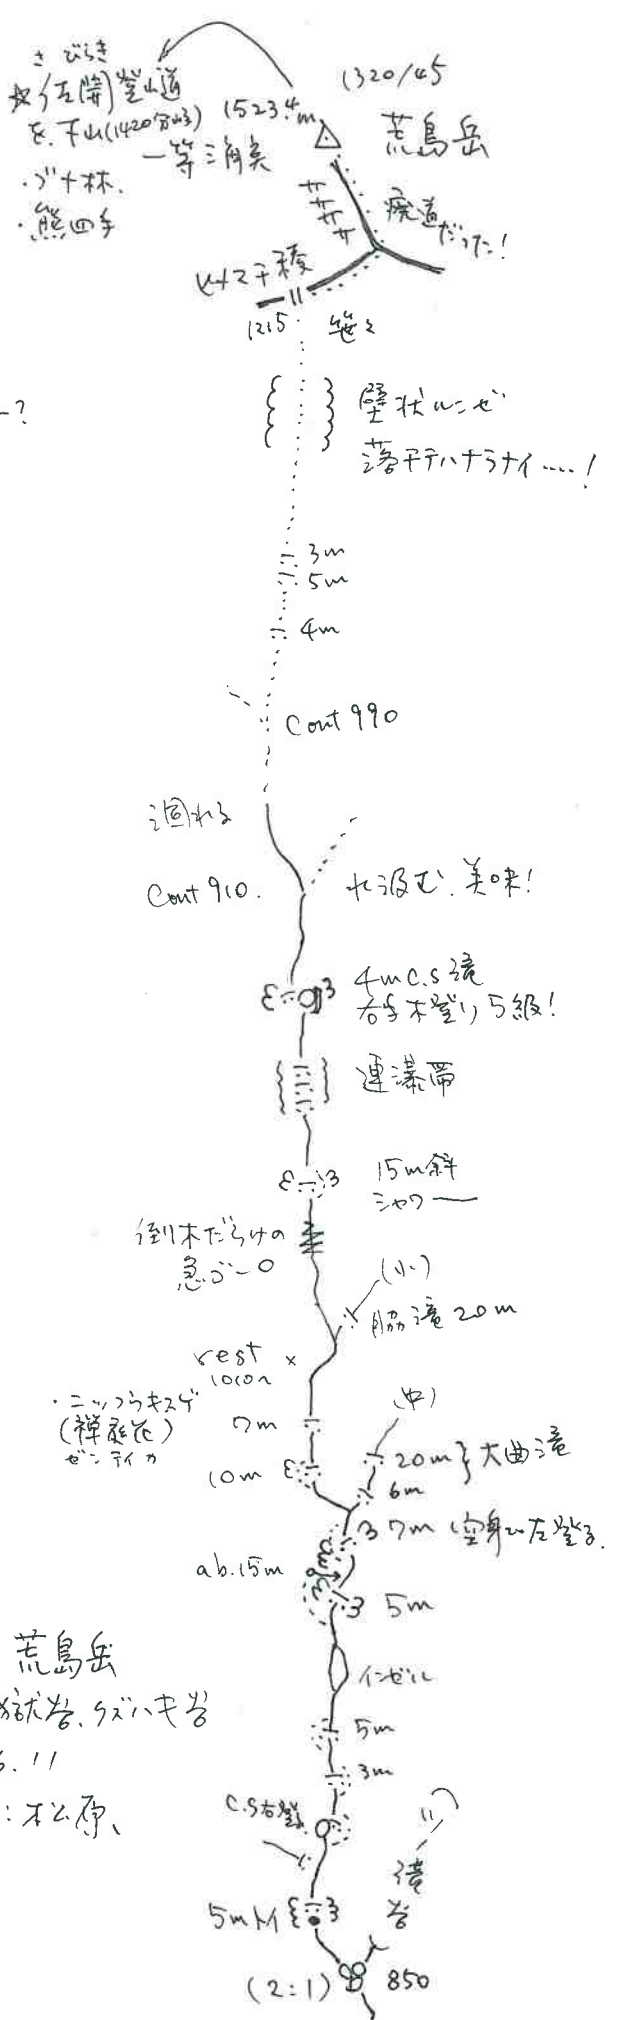 さ びらき
☆(佐開)登山道
を下山(1420分岐)
・ブナ林.
・熊四手
1320/45
1523.4m
荒島岳
一等三角点
廃道だった!
1215
笹々
壁状ルンゼ
落チテハナラナイ……!
3m
5m
4m
Cont 990
涸れる
Cont 910.
水汲む. 美味!
4m C.S滝
右手木登り 5級!
連瀑帯
15m斜
シャワー
倒木だらけの
急ゴーロ
(小)
脇滝 20m
rest ×
・ニッコウキスゲ
(禅庭花)
ゼンテイカ
7m
(中)
10m
20m } 大曲滝
6m
7m 空身で左登る.
ab.15m
5m
荒島岳
インゼル
谷、クズハキ谷
5m
.11
3m
:松原、
C.S右登
滝谷
5m M
(2:1)
850